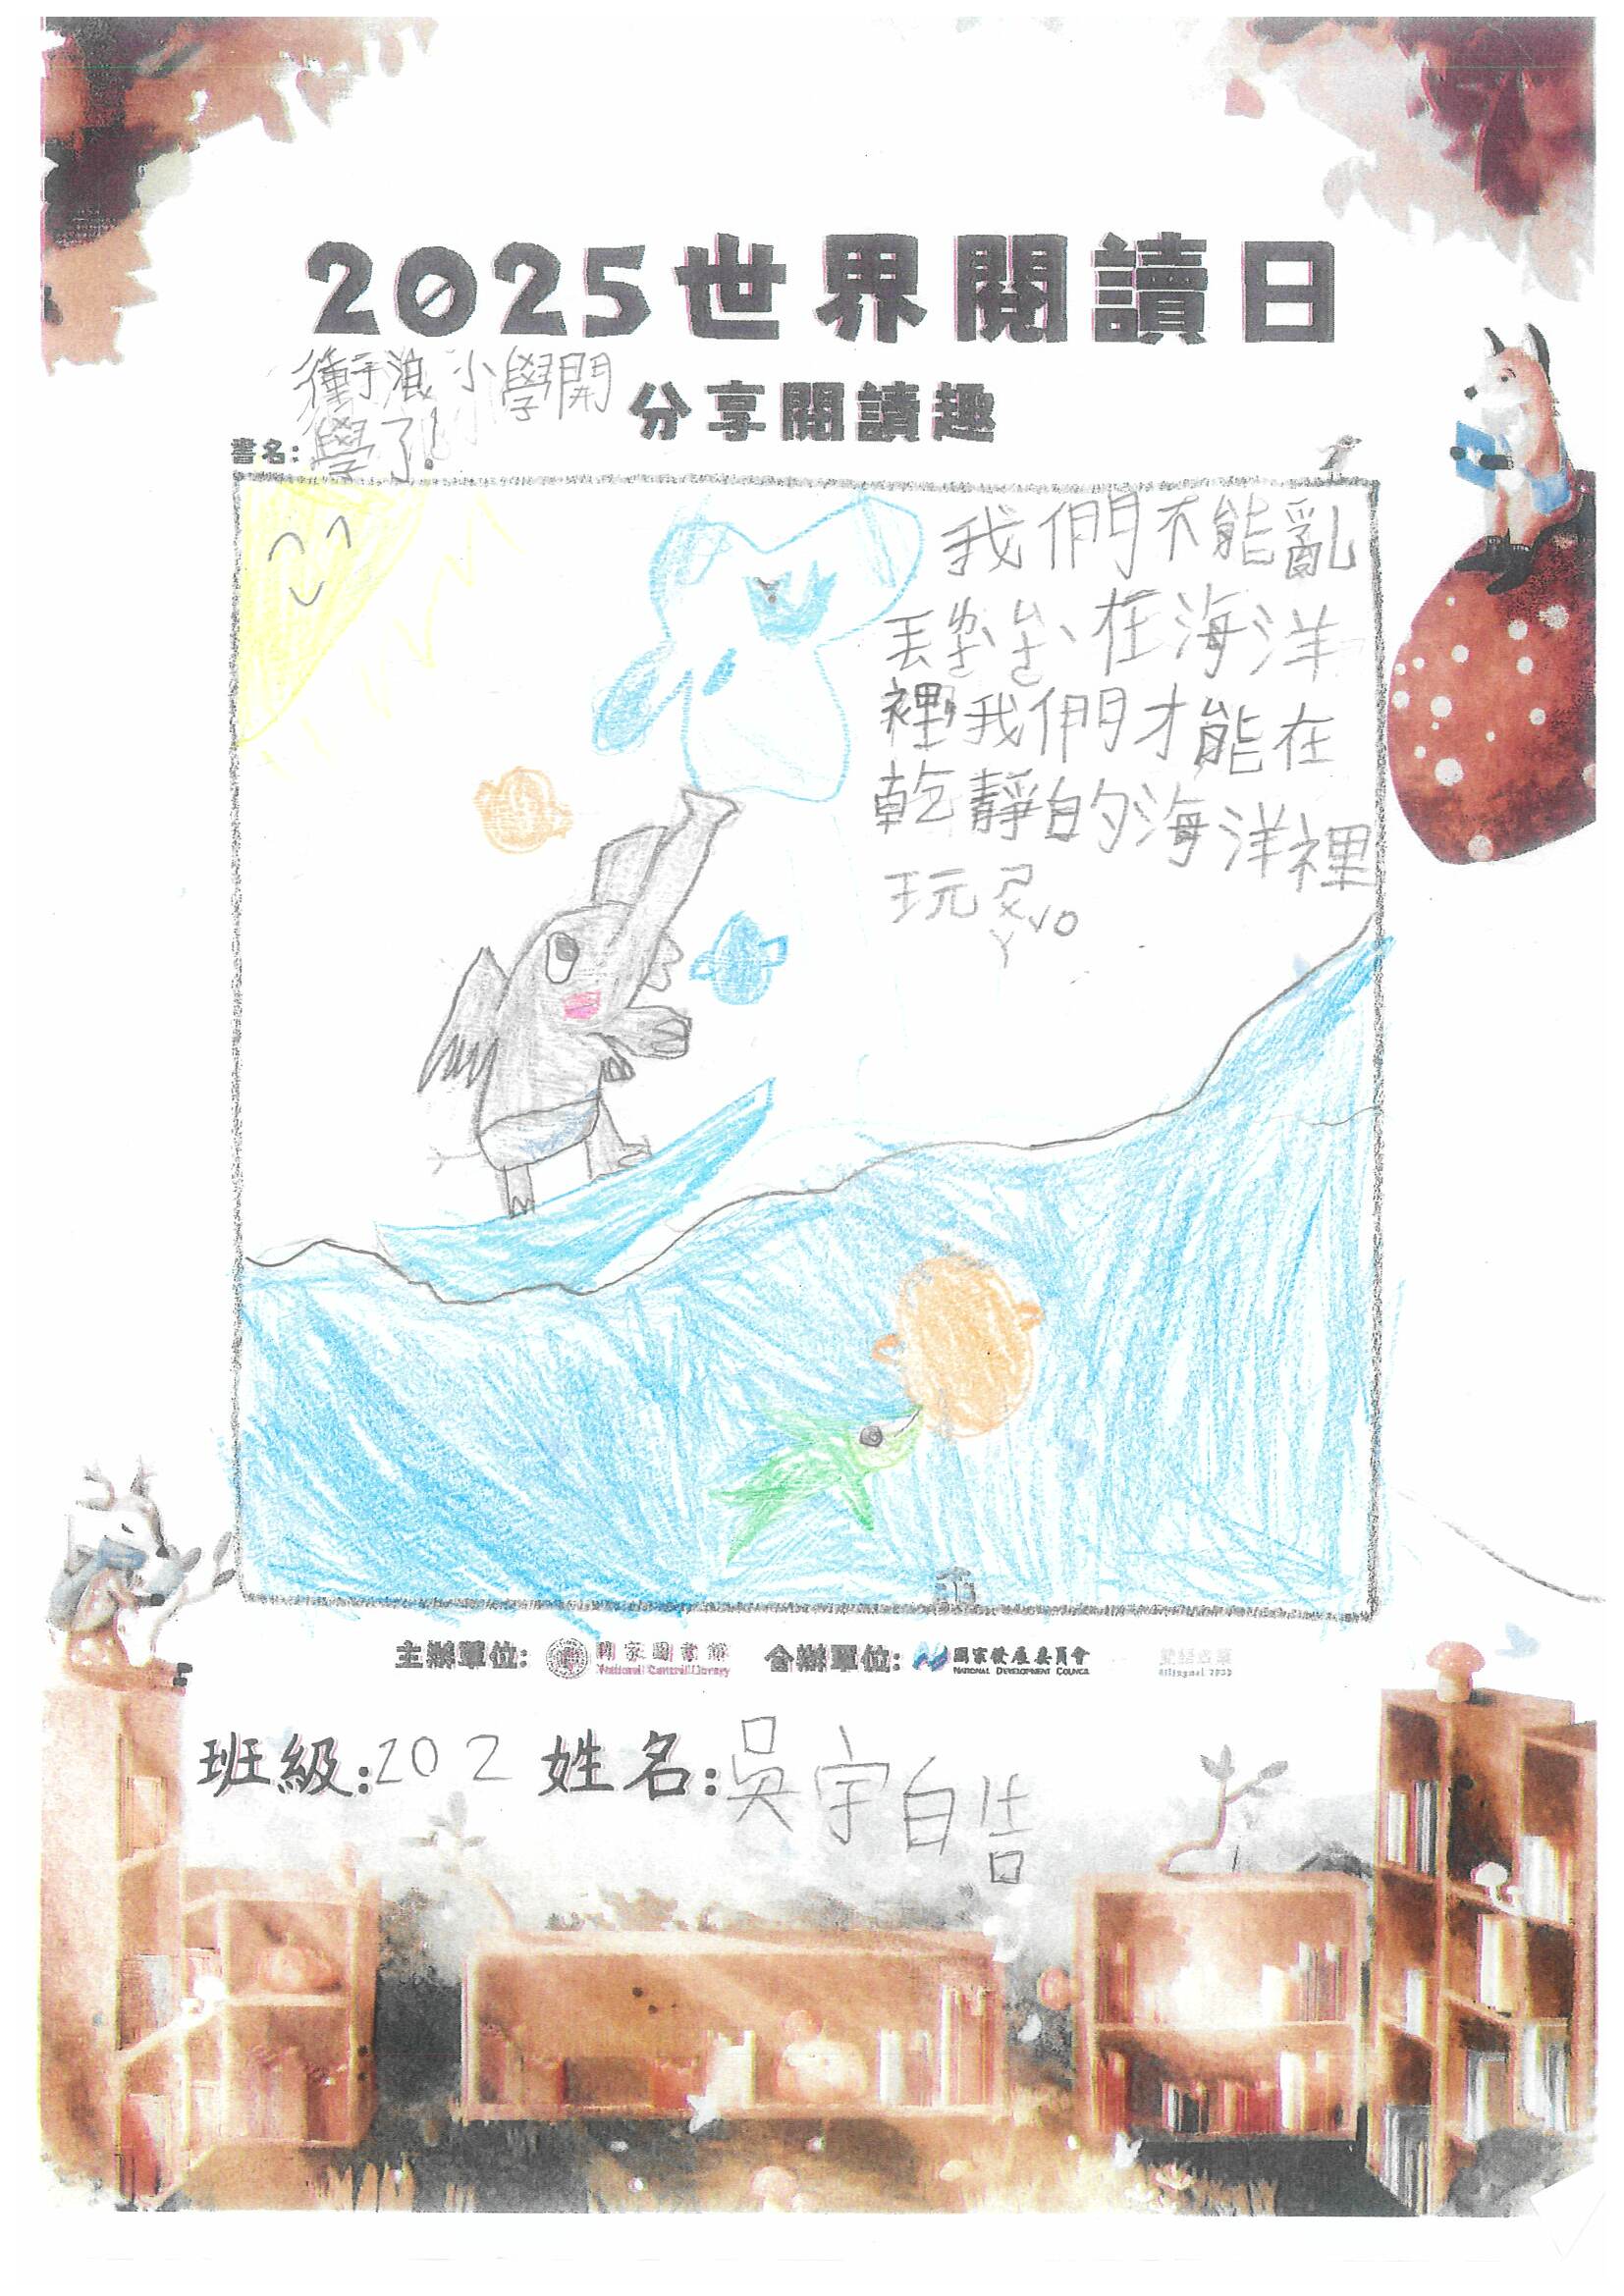 2025世界閱讀日
分享閱讀趣
衝浪小學開
學了!
書名:
我們不能亂
丟垃圾在海洋
裡我們才能在
乾靜的海洋裡
玩又
主辦單位: 國家圖書館 National Central Library 合辦單位: 國家發展委員會 NATIONAL DEVELOPMENT COUNCIL 雙語政策 Bilingual 2030
班級:202 姓名:吳宇皓